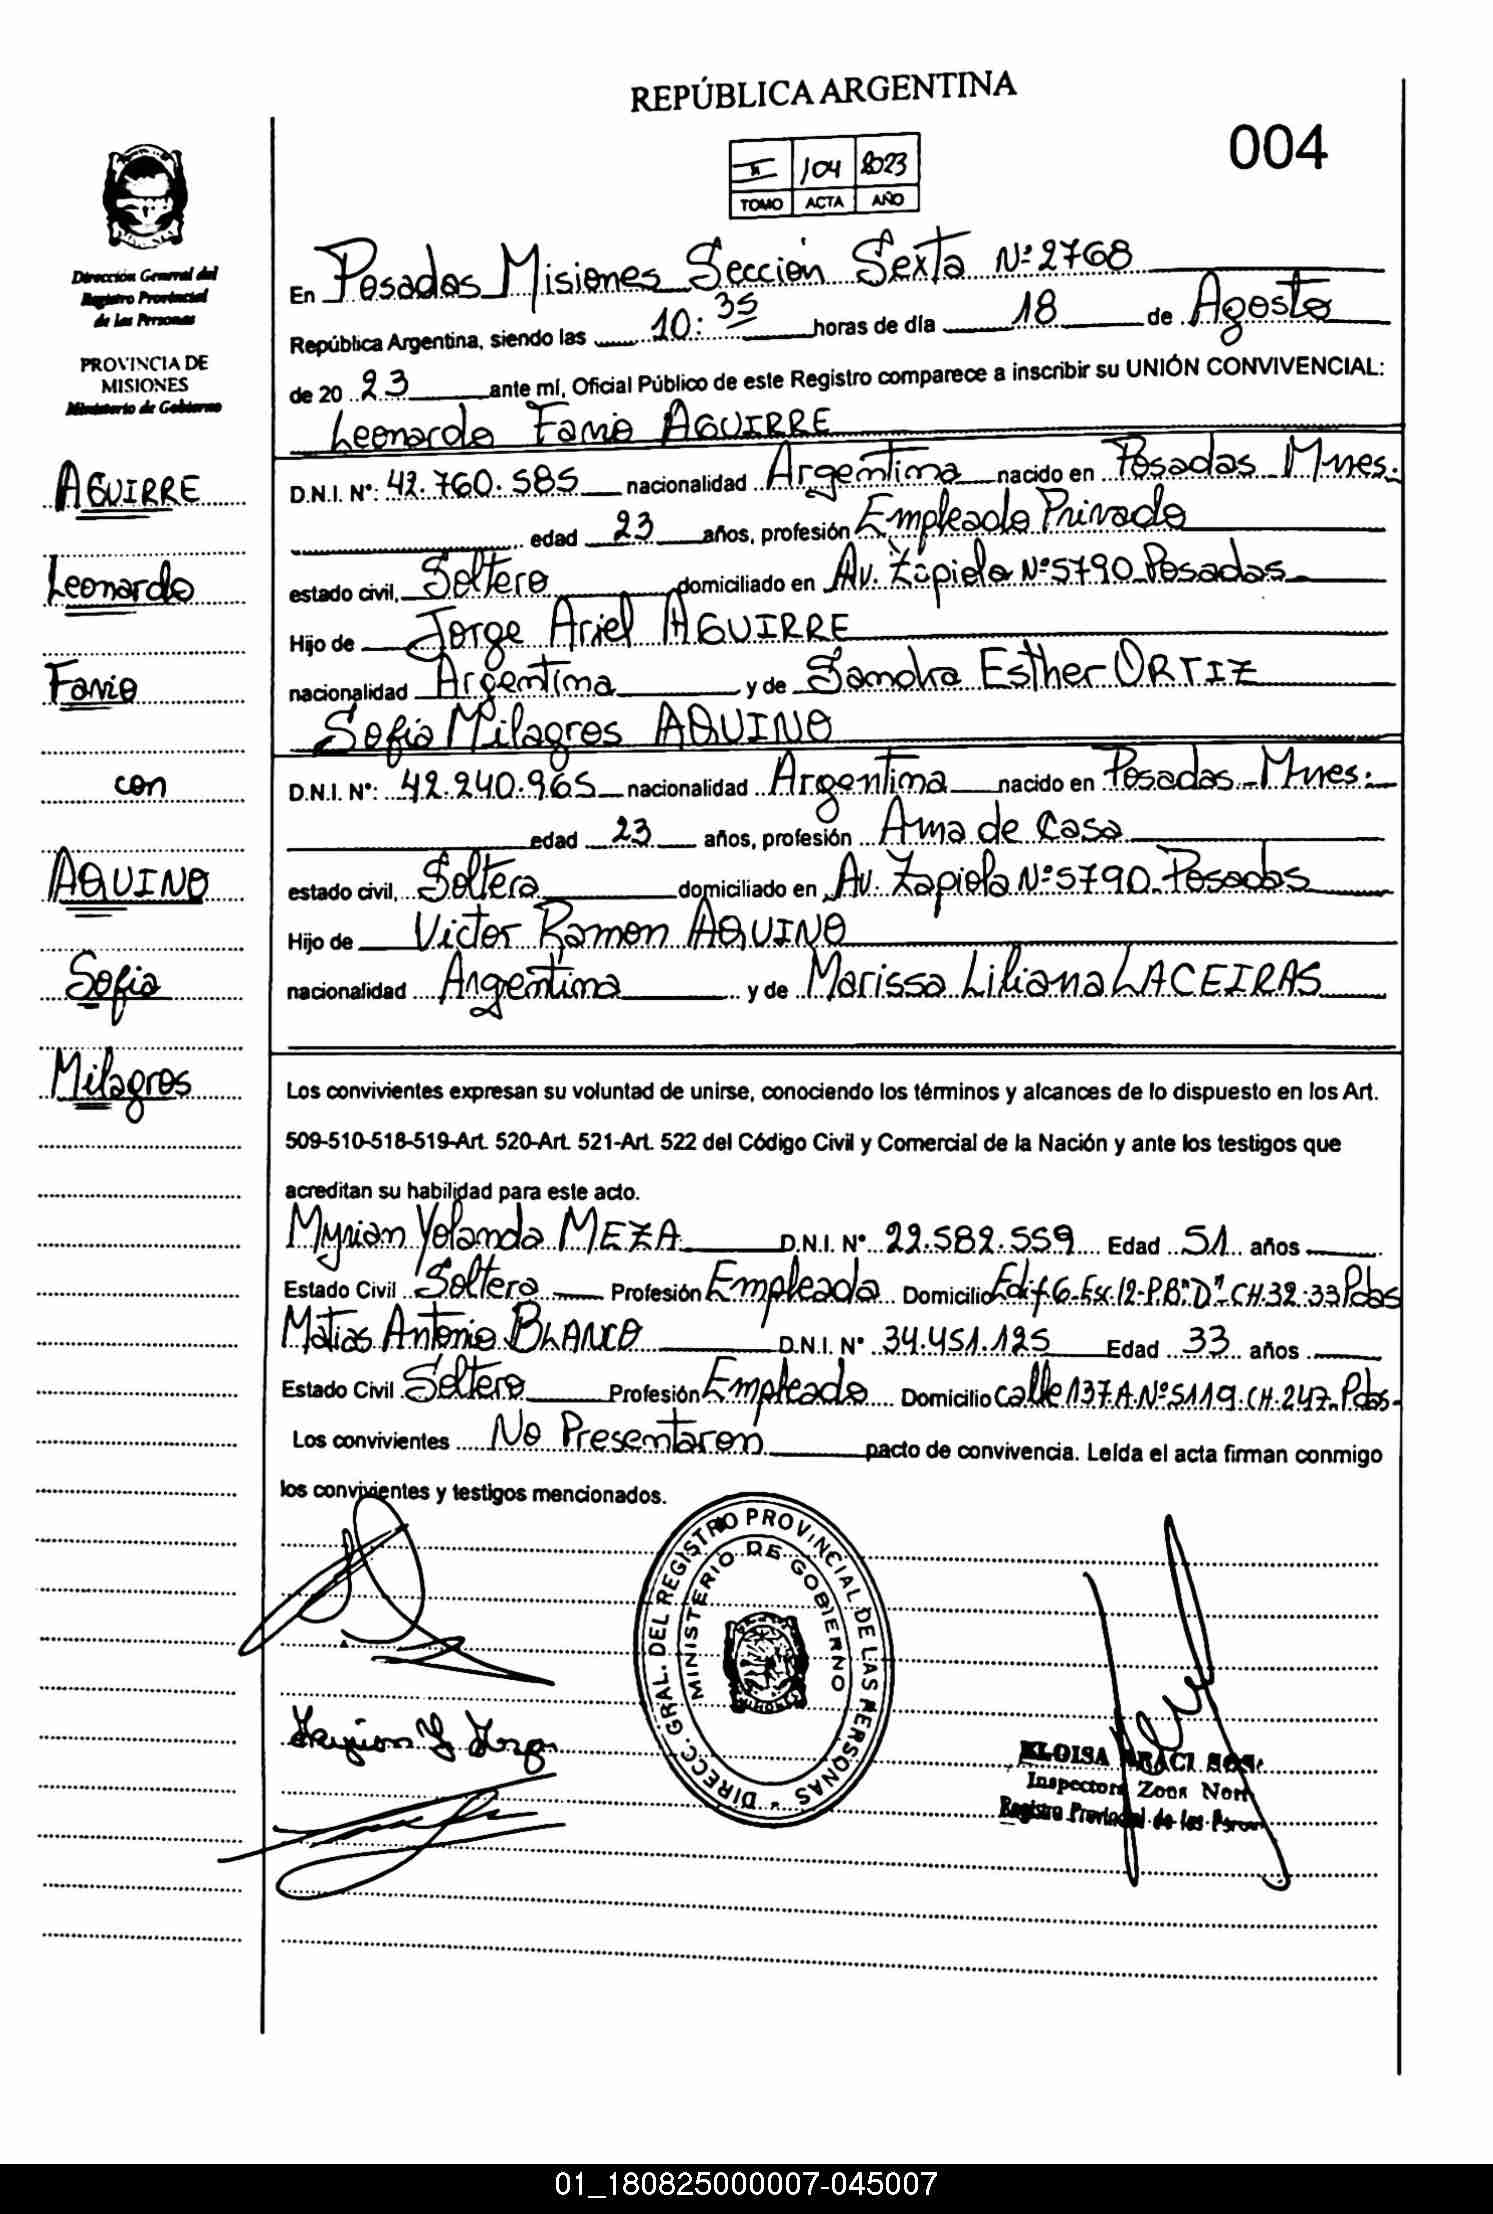 REPÚBLICA ARGENTINA
004
II 104 2023
TOMO ACTA AÑO
Dirección General del
Registro Provincial
de las Personas
PROVINCIA DE
MISIONES
Ministerio de Gobierno
AGUIRRE
Leonardo
Favio
con
AQUINO
Sofia
Milagros
En Posadas Misiones Sección Sexta Nº 2768
República Argentina, siendo las 10:35 horas de día 18 de Agosto
de 20 23 ante mí, Oficial Público de este Registro comparece a inscribir su UNIÓN CONVIVENCIAL:
Leonardo Favio AGUIRRE
D.N.I. Nº: 42.760.585 nacionalidad Argentina nacido en Posadas Mnes.
edad 23 años, profesión Empleado Privado
estado civil, Soltero domiciliado en Av. Zapiola Nº 5790 Posadas
Hijo de Jorge Ariel AGUIRRE
nacionalidad Argentina y de Sandra Esther ORTIZ
Sofia Milagros AQUINO
D.N.I. Nº: 42.240.965 nacionalidad Argentina nacido en Posadas - Mnes.
edad 23 años, profesión Ama de Casa
estado civil, Soltera domiciliado en Av. Zapiola Nº 5790 Posadas
Hijo de Victor Ramon AQUINO
nacionalidad Argentina y de Marissa Liliana LACEIRAS
Los convivientes expresan su voluntad de unirse, conociendo los términos y alcances de lo dispuesto en los Art.
509-510-518-519-Art. 520-Art. 521-Art. 522 del Código Civil y Comercial de la Nación y ante los testigos que
acreditan su habilidad para este acto.
Myrian Yolanda MEZA D.N.I. Nº 22.582.559 Edad 51 años
Estado Civil Soltera Profesión Empleada Domicilio Edif.6-Esc.12-P.B."D"-CH.32-33 Pdas
Matias Antonio BLANCO D.N.I. Nº 34.451.125 Edad 33 años
Estado Civil Soltero Profesión Empleado Domicilio Calle 137 A.Nº 5119.CH.247. Pdas-
Los convivientes No Presentaron pacto de convivencia. Leída el acta firman conmigo
los convivientes y testigos mencionados.
DIRECC. GRAL. DEL REGISTRO PROVINCIAL DE LAS PERSONAS
MINISTERIO DE GOBIERNO
ELOISA ARACI
Inspectora Zona
Registro Provincial de las
01_180825000007-045007